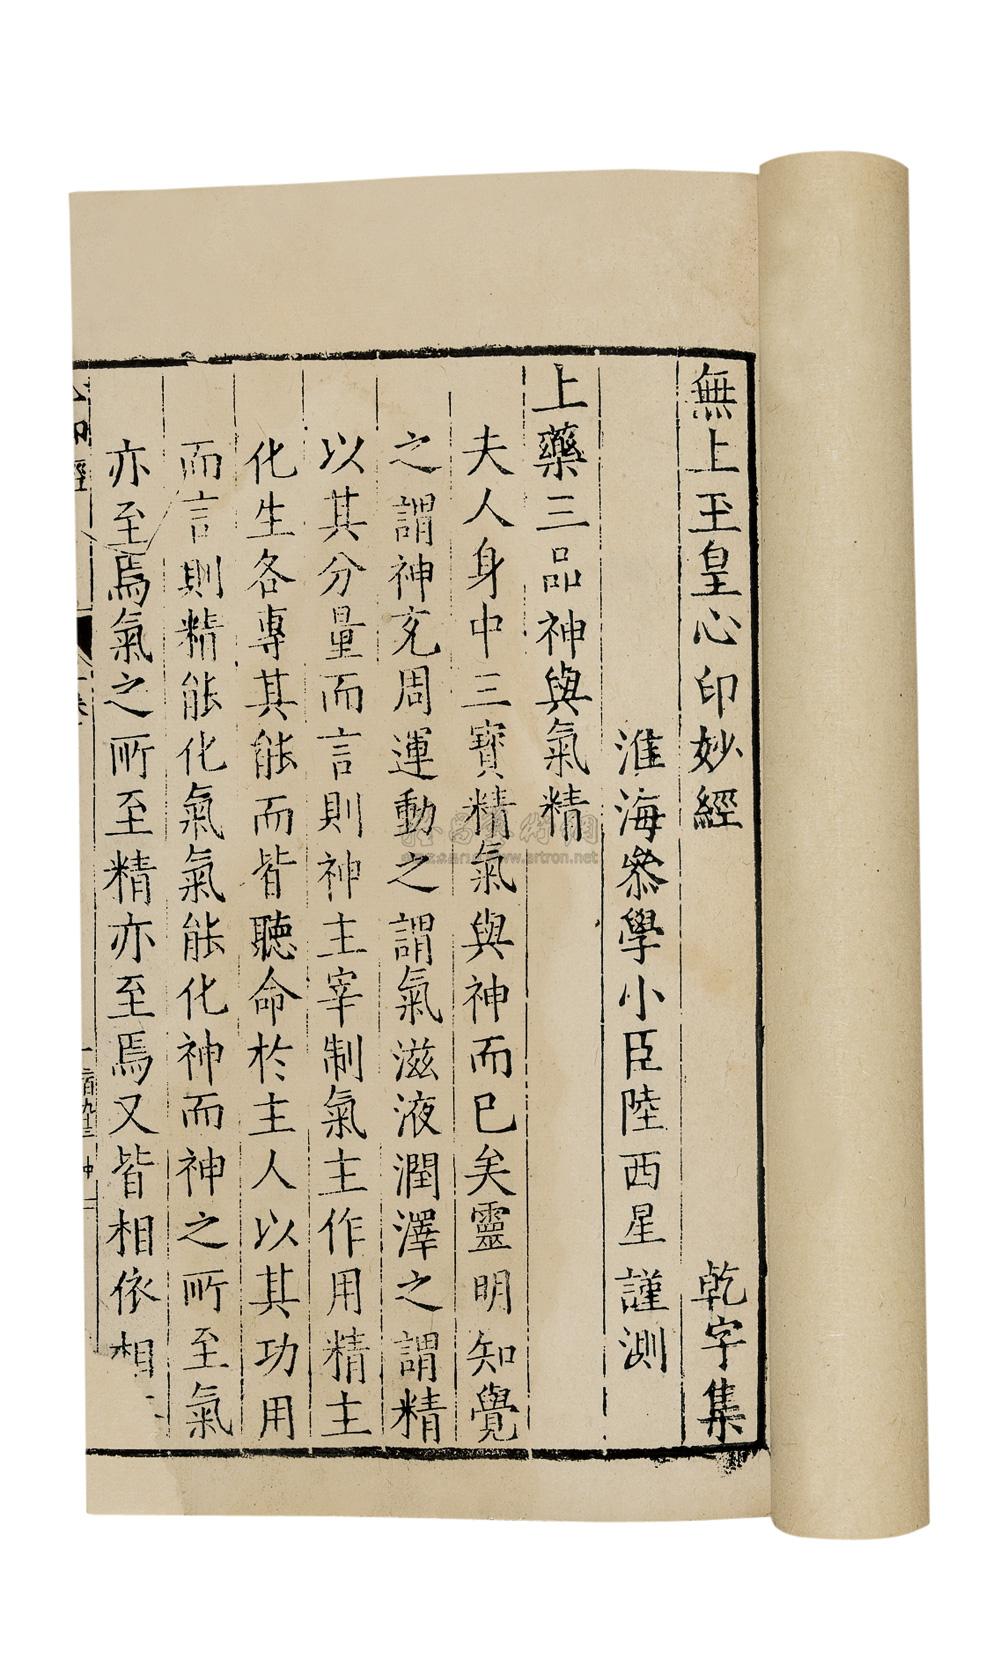 無上玉皇心印妙經 乾字集
淮海叅學小臣陸西星謹測
上藥三品神與氣精
夫人身中三寶精氣與神而已矣靈明知覺
之謂神充周運動之謂氣滋液潤澤之謂精
以其分量而言則神主宰制氣主作用精主
化生各專其能而皆聽命於主人以其功用
而言則精能化氣氣能化神而神之所至氣
亦至焉氣之所至精亦至焉又皆相依相
心印經
www.artron.net